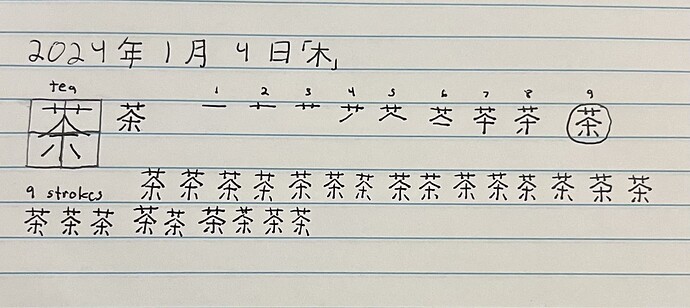 2024年1月4日「木」
tea 1 2 3 4 5 6 7 8 9
茶 茶 一 艹 茶
茶茶茶茶茶茶茶茶茶茶茶茶茶茶茶
9 strokes
茶茶茶茶茶茶茶茶茶